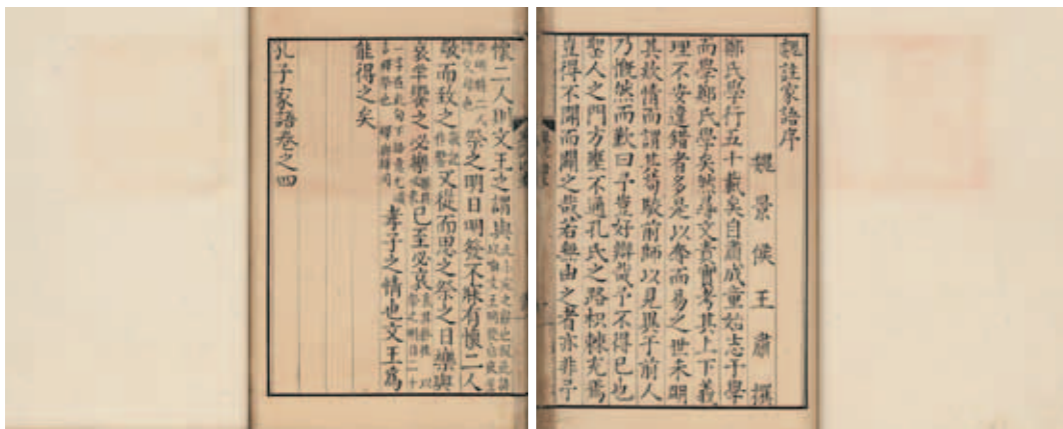 魏註家語序
魏景侯王肅撰
鄭氏學行五十載矣自肅成童始志于學
而學鄭氏學矣然尋文責實考其上下義
理不安違錯者多是以奪而易之世未明
其款情而謂其苟駮前師以見異于前人
乃慨然而歎曰予豈好辯哉予不得已也
聖人之門方壅不通孔氏之路枳棘充焉
豈得不開而闢之哉若無由之者亦非予
懷二人則文王之謂與
祭之明日明發不寐有懷二人
敬而致之又從而思之祭之日樂與
哀半饗之必樂已至必哀
孝子之情也文王為
能得之矣
孔子家語卷之四